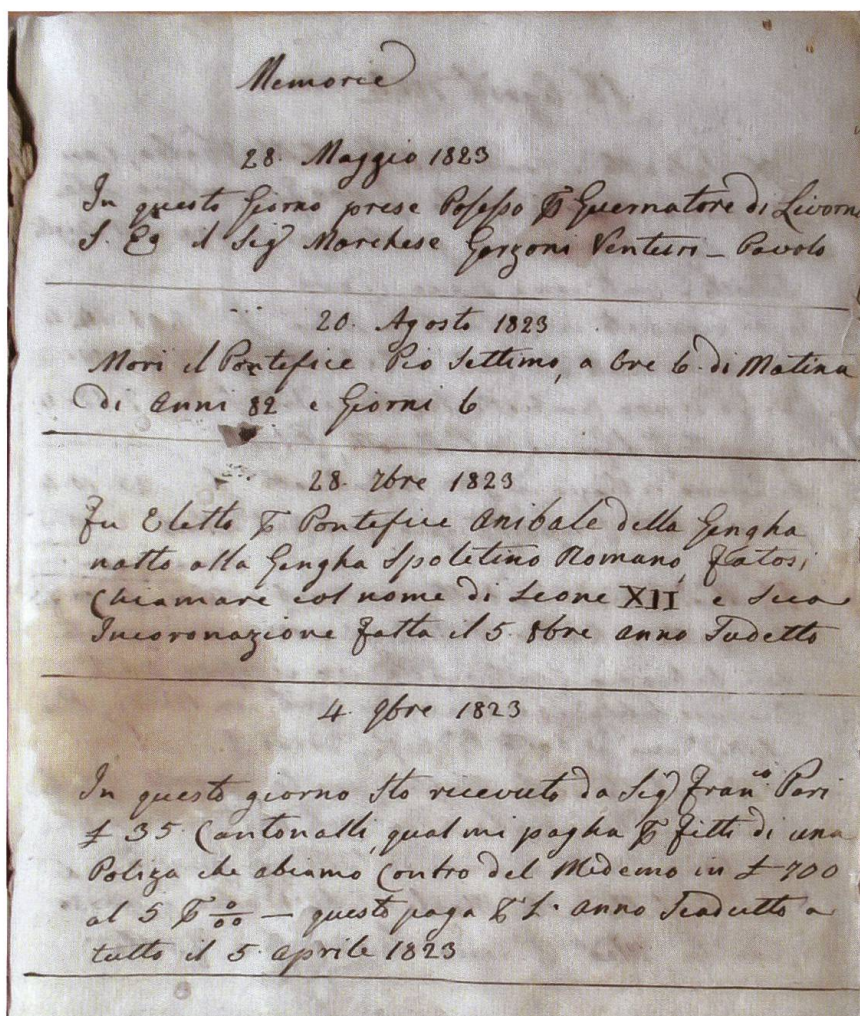 Memorie
28. Maggio 1823
In questo Giorno prese Posesso Guernatore di Livorn
S. Eз il Sigr Marchese Garzoni Venturi _ Pavolo
20. Agosto 1823
Mori il Pontefice Pio Settimo, a Ore 6. di Matina
di Anni 82 e Giorni 6
28. 7bre 1823
Fu Eletto Pontefice Anibale della Gengha
natto alla Gengha Spoletino Romano, fatosi
Chiamare col nome di Leone XII e Sua
Incoronazione fatta il 5. 8bre anno Sudetto
4. 9bre 1823
In questo giorno Ho ricevuto da Sigr Franco Pari
£ 35 Contonalli, qual mi pagha fitti di una
Poliza che abiamo Contro del Medemo in £ 700
al 5 — questo paga L'anno Scadutto a
tutto il 5. Aprile 1823